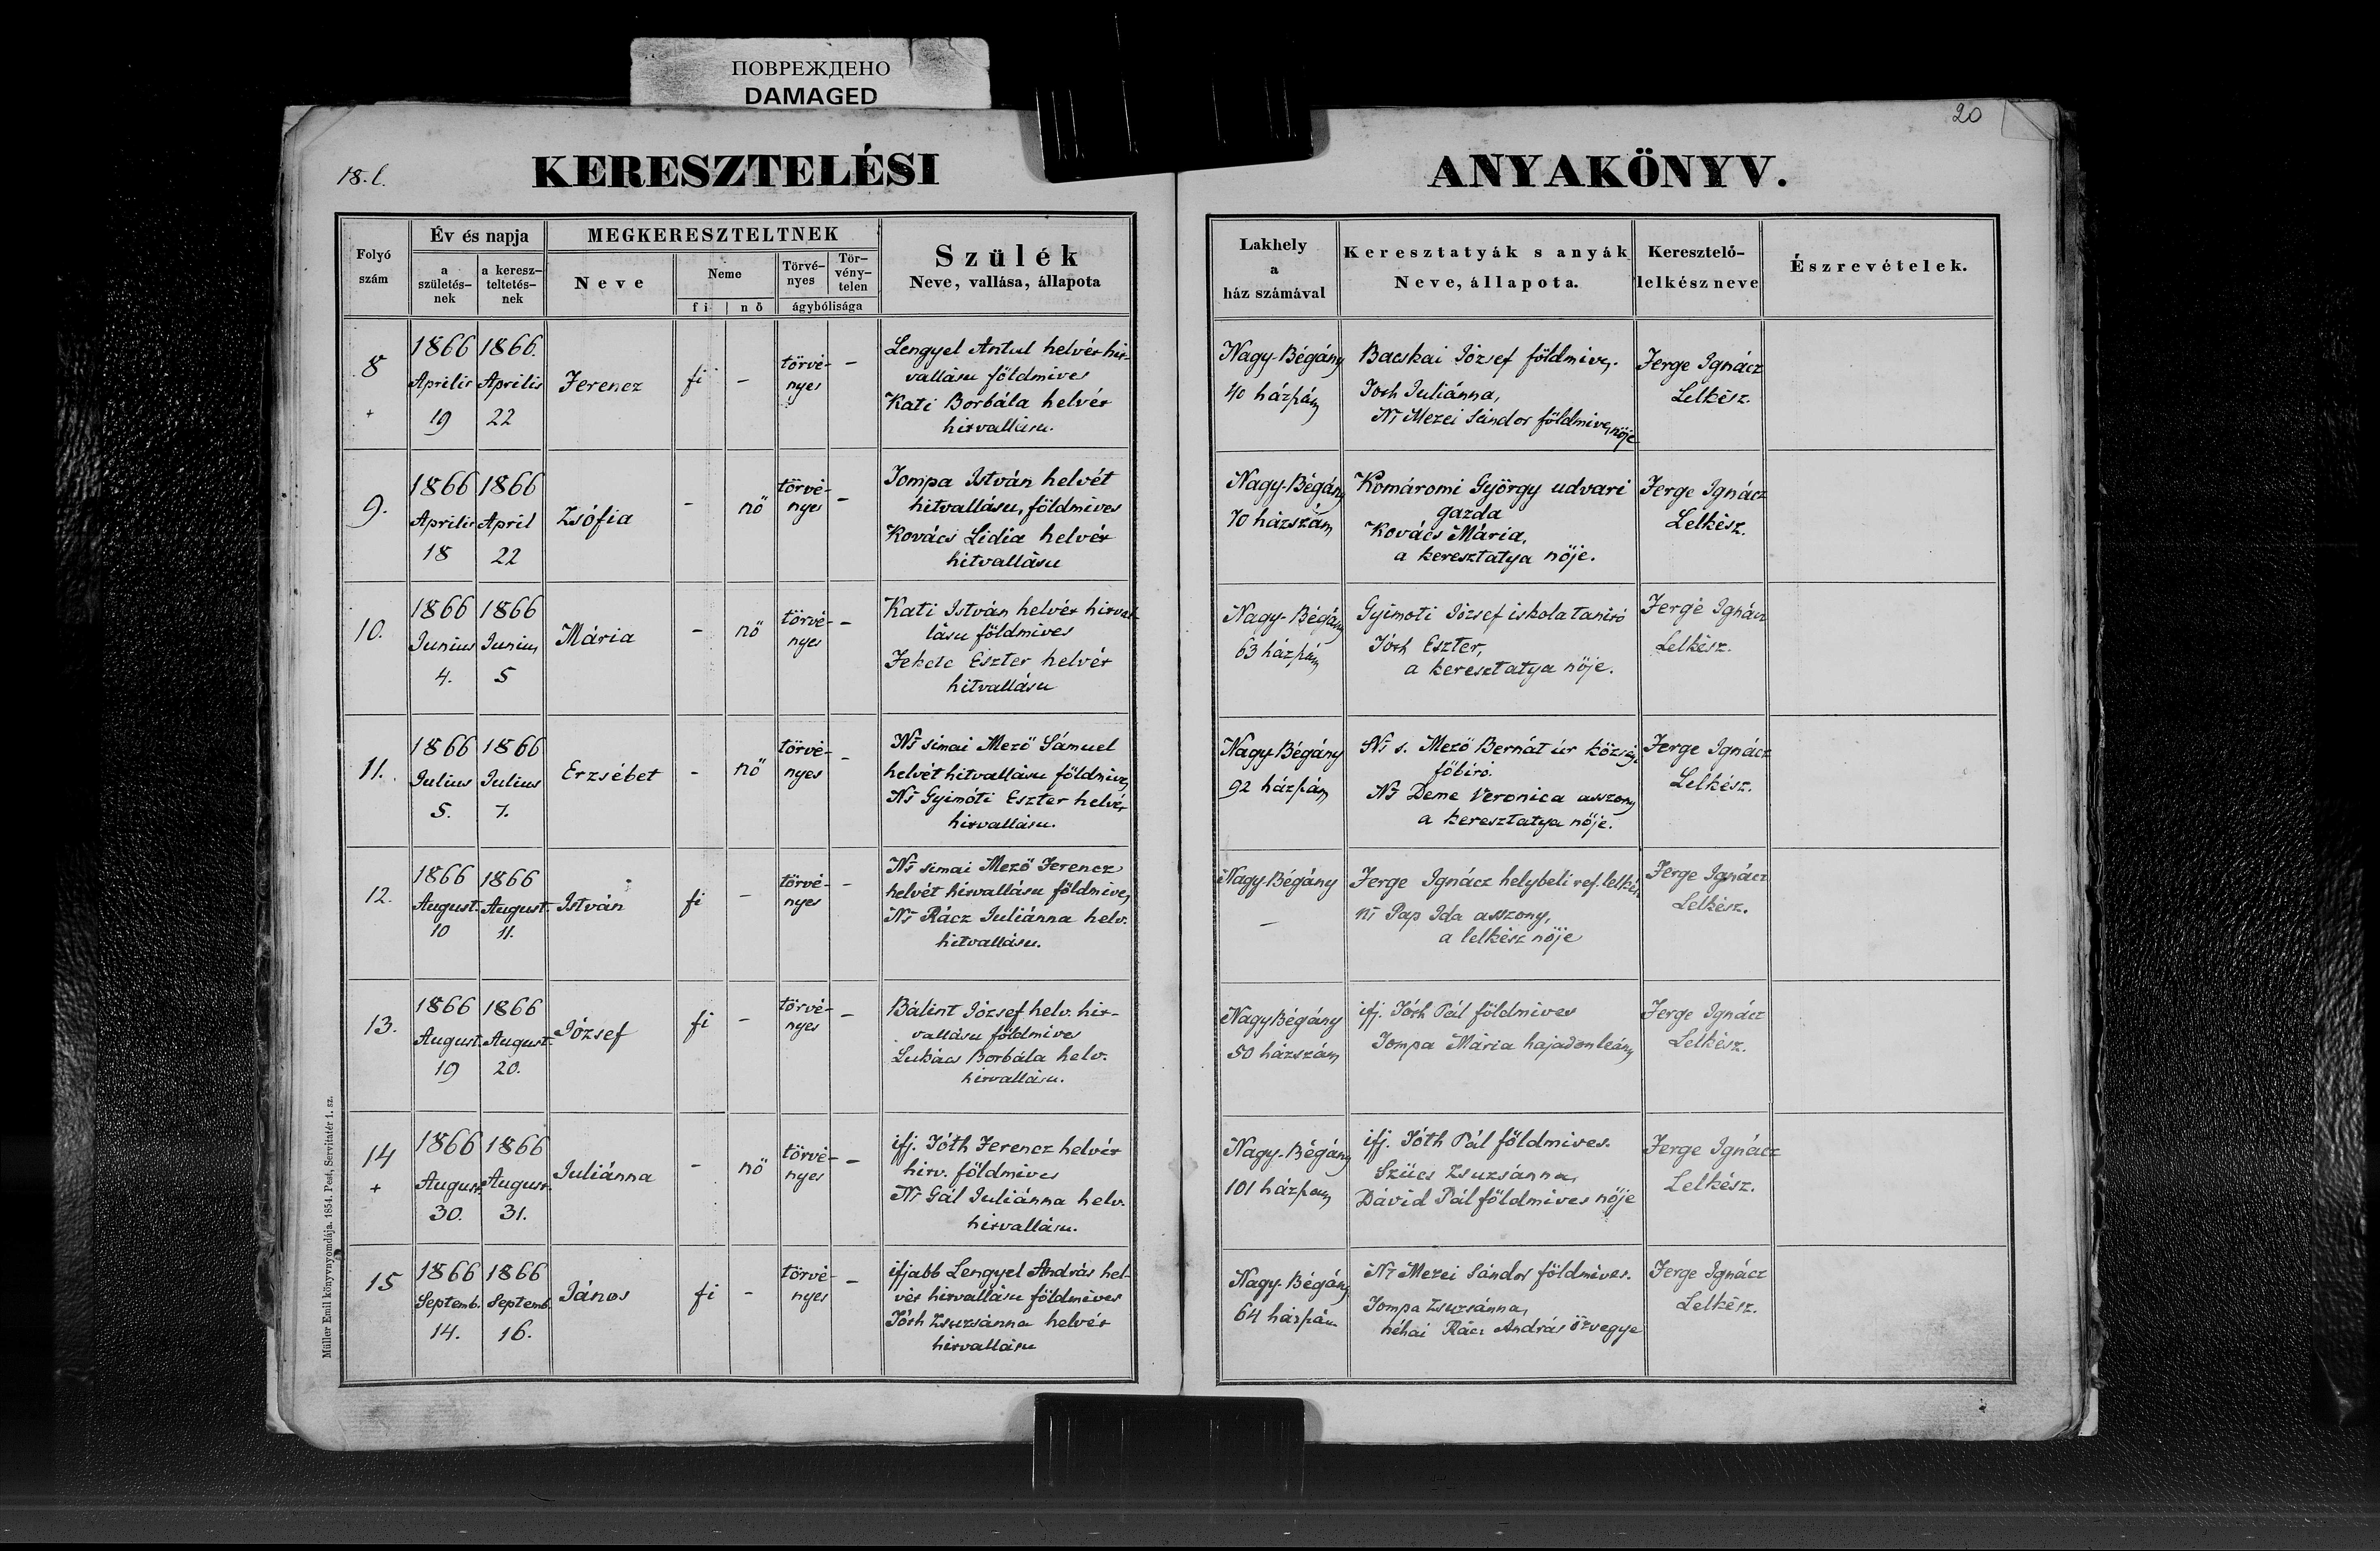 ПОВРЕЖДЕНО
DAMAGED
20
18. l.
KERESZTELÉSI ANYAKÖNYV.
Folyó szám
Év és napja
a születés-nek
a keresz-teltetés-nek
MEGKERESZTELTNEK
Neve
Neme
fi | nö
Törvé-nyes
Tör-vény-telen
ágybólisága
Szülék
Neve, vallása, állapota
Lakhely
a
ház számával
Keresztatyák s anyák
Neve, állapota.
Keresztelő-
lelkész neve
Észrevételek.
8
+
1866
Aprilis
19
1866.
Aprilis
22
Ferencz
fi
-
törvé-
nyes
-
Lengyel Antul helvét hit-
vallásu földmives
Kati Borbála helvét
hitvallásu.
Nagy-Bégány
40 házszám
Bacskai József földmives.
Toth Juliánna,
Ns Mezei Sándor földmives nöje
Ferge Ignácz
Lelkész.
9.
1866
Aprilis
18
1866
April
22
Zsófia
-
nö
törvé-
nyes
-
Tompa István helvét
hitvallásu, földmives
Kovács Lidia helvét
hitvallásu
Nagy-Bégány
70 házszám
Komáromi György udvari
gazda
Kovács Mária,
a keresztatya nöje.
Ferge Ignácz
Lelkész.
10.
1866
Junius
4.
1866
Junius
5
Mária
-
nö
törvé-
nyes
-
Kati István helvét hitval-
lásu földmives
Fekete Eszter helvét
hitvallásu
Nagy-Bégány
63 házszám
Gyimoti József iskolatanitó
Tóth Eszter,
a keresztatya nöje.
Ferge Ignácz
Lelkész.
11.
1866
Julius
5.
1866
Julius
7.
Erzsébet
-
nö
törvé-
nyes
-
Ns simai Mezö Sámuel
helvét hitvallásu földmives
Ns Gyimóti Eszter helvét
hitvallásu.
Nagy-Bégány
92 házszám
Ns s. Mezö Bernát úr község.
föbiró.
Ns Deme Veronica asszony
a keresztatya nöje.
Ferge Ignácz
Lelkész.
12.
1866
August.
10
1866
August.
11.
István
fi
-
törvé-
nyes
-
Ns simai Mezö Ferencz
helvét hitvallásu földmives
Ns Rácz Juliánna helv.
hitvallásu.
Nagy-Bégány
-
Ferge Ignácz helybeli ref. lelkész
ns Pap Ida asszony,
a lelkész nöje
Ferge Ignácz
Lelkész.
13.
1866
August.
19
1866
August.
20.
József
fi
-
törvé-
nyes
-
Bálint József helv. hit-
vallásu földmives
Lukács Borbála helv.
hitvallásu.
Nagy Bégány
50 házszám
ifj. Tóth Pál földmives
Tompa Mária hajadon leány
Ferge Ignácz
Lelkész.
14
+
1866
August.
30.
1866
August.
31.
Juliánna
-
nö
törvé-
nyes
-
ifj. Tóth Ferencz helvét
hitv. földmives
Ns Gál Juliánna helv.
hitvallásu.
Nagy-Bégány
101 házszám
ifj. Tóth Pál földmives.
Szücs Zsuzsánna,
Dávid Pál földmives nöje
Ferge Ignácz
Lelkész.
15
1866
Septemb.
14.
1866
Septemb.
16.
János
fi
-
törvé-
nyes
-
ifjabb Lengyel András hel-
vét hitvallásu földmives
Tóth Zsuzsánna helvét
hitvallásu
Nagy-Bégány
64 házszám
Ns Mezei Sándor földmives.
Tompa Zsuzsánna,
néhai Rácz András özvegye
Ferge Ignácz
Lelkész.
Müller Emil könyvnyomdája. 1854. Pest, Servitatér 1. sz.